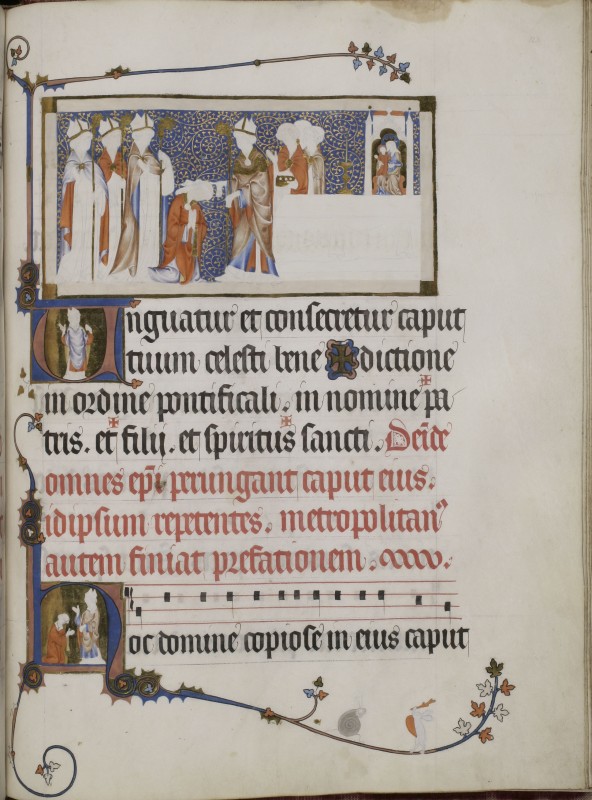 Unguatur et consecretur caput
tuum celesti bene ✠ dictione
in ordine pontificali. in nomine pa
✠tris. et filii. et spiritus sancti. Deīde
omnes ep̄i perungant caput eius.
idipsum repetentes. metropolitan⁹
autem finiat prefationem.
Hoc domine copiose in eius caput